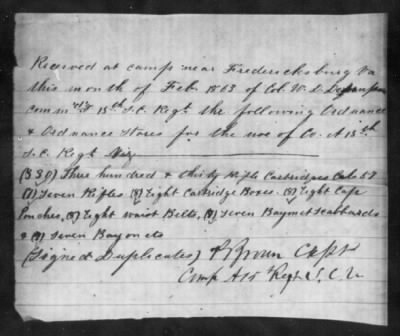 Received at camp near Fredericksburg Va
this month of Feb. 1863 of Col. W. D.
comm'd'g 13th S.C. Regt the following Ordnance
& Ordnance Stores for the use of Co. A 13th
S.C. Regt Viz
(330) Three hundred & thirty Rifle Cartridges Calo 57
(7) Seven Rifles (8) Eight Cartridge Boxes (8) Eight Cap
Pouches, (8) Eight waist Belts, (7) Seven Bayonet Scabbards
& (7) Seven Bayonets
(Signed Duplicates) Brown Capt
Comp A 13 Regt S.C.V.